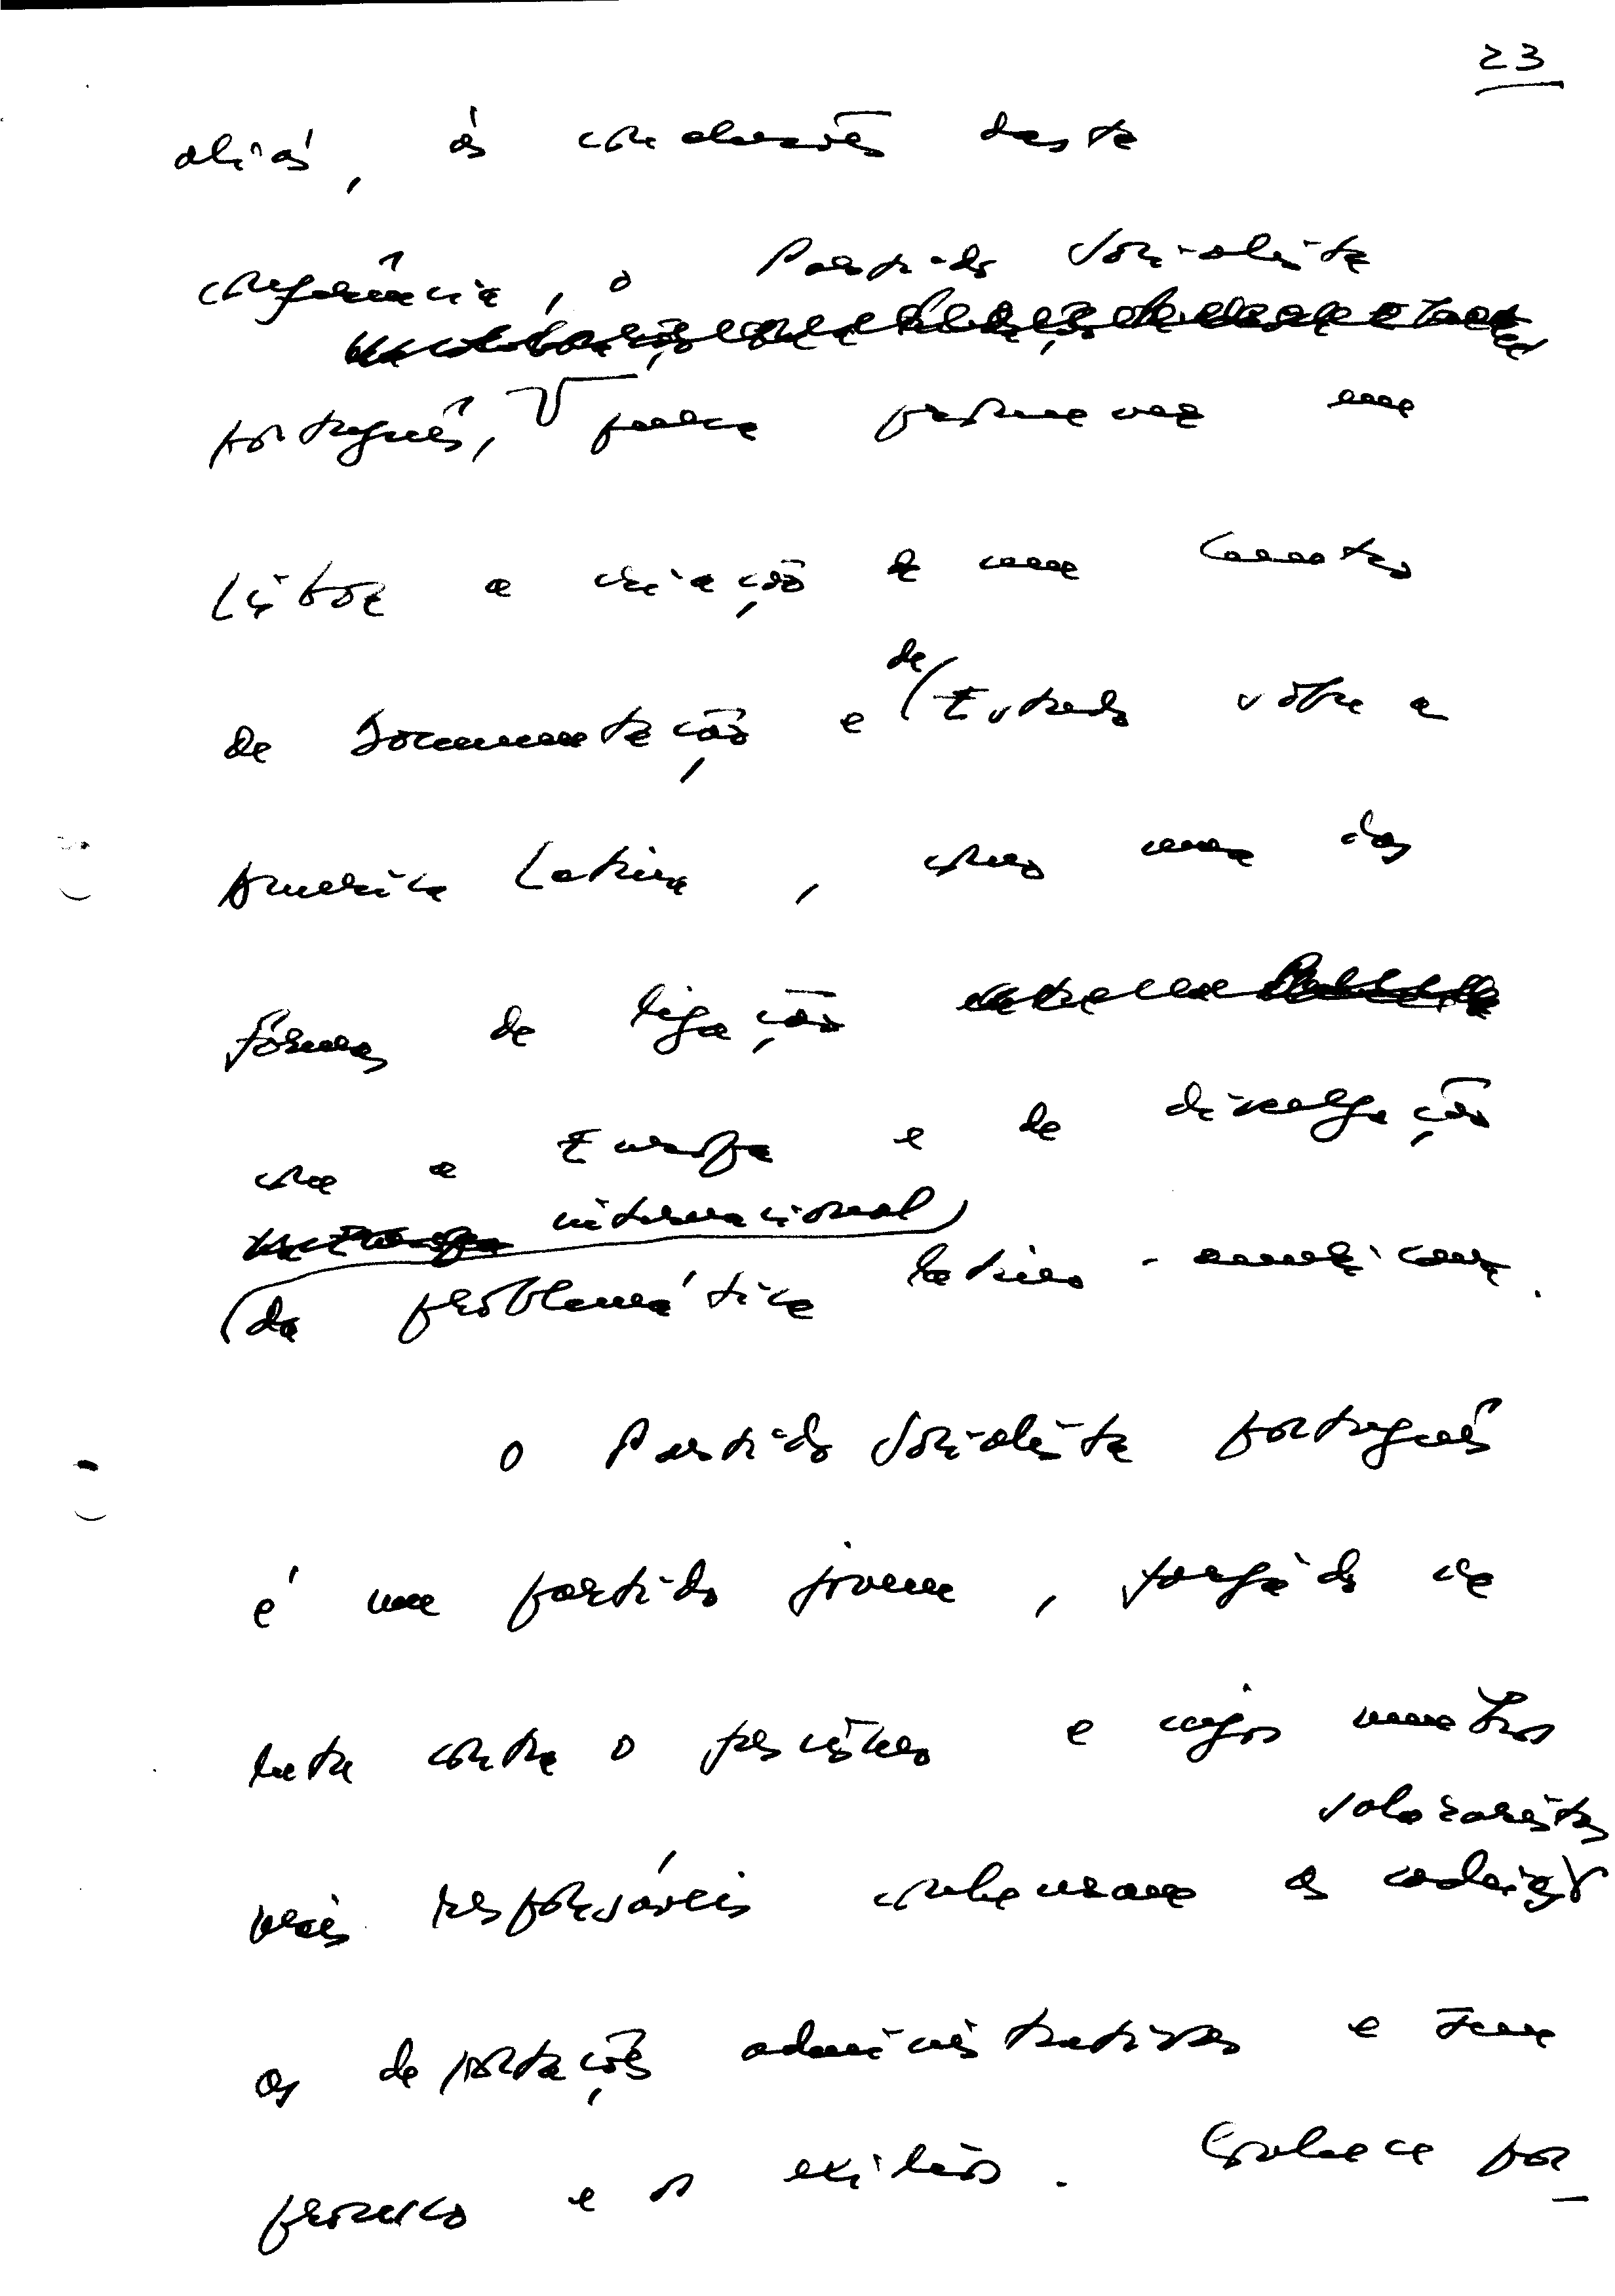 23
aliás, às conclusões desta
conferência, o Partido Socialista
português, pensa promover em
Lisboa a criação de um Centro
de Documentação e de Estudo sobre a
América Latina, como uma das
formas de ligação
com a Europa e de divulgação
internacional
da problemática latino-americana.
O Partido Socialista português
é um partido jovem, forjado na
luta contra o fascismo e cujos membros
salazaristas
mais responsáveis conheceram as cadeias
as deportações administrativas e sem
processo e o exílio. Conhece por